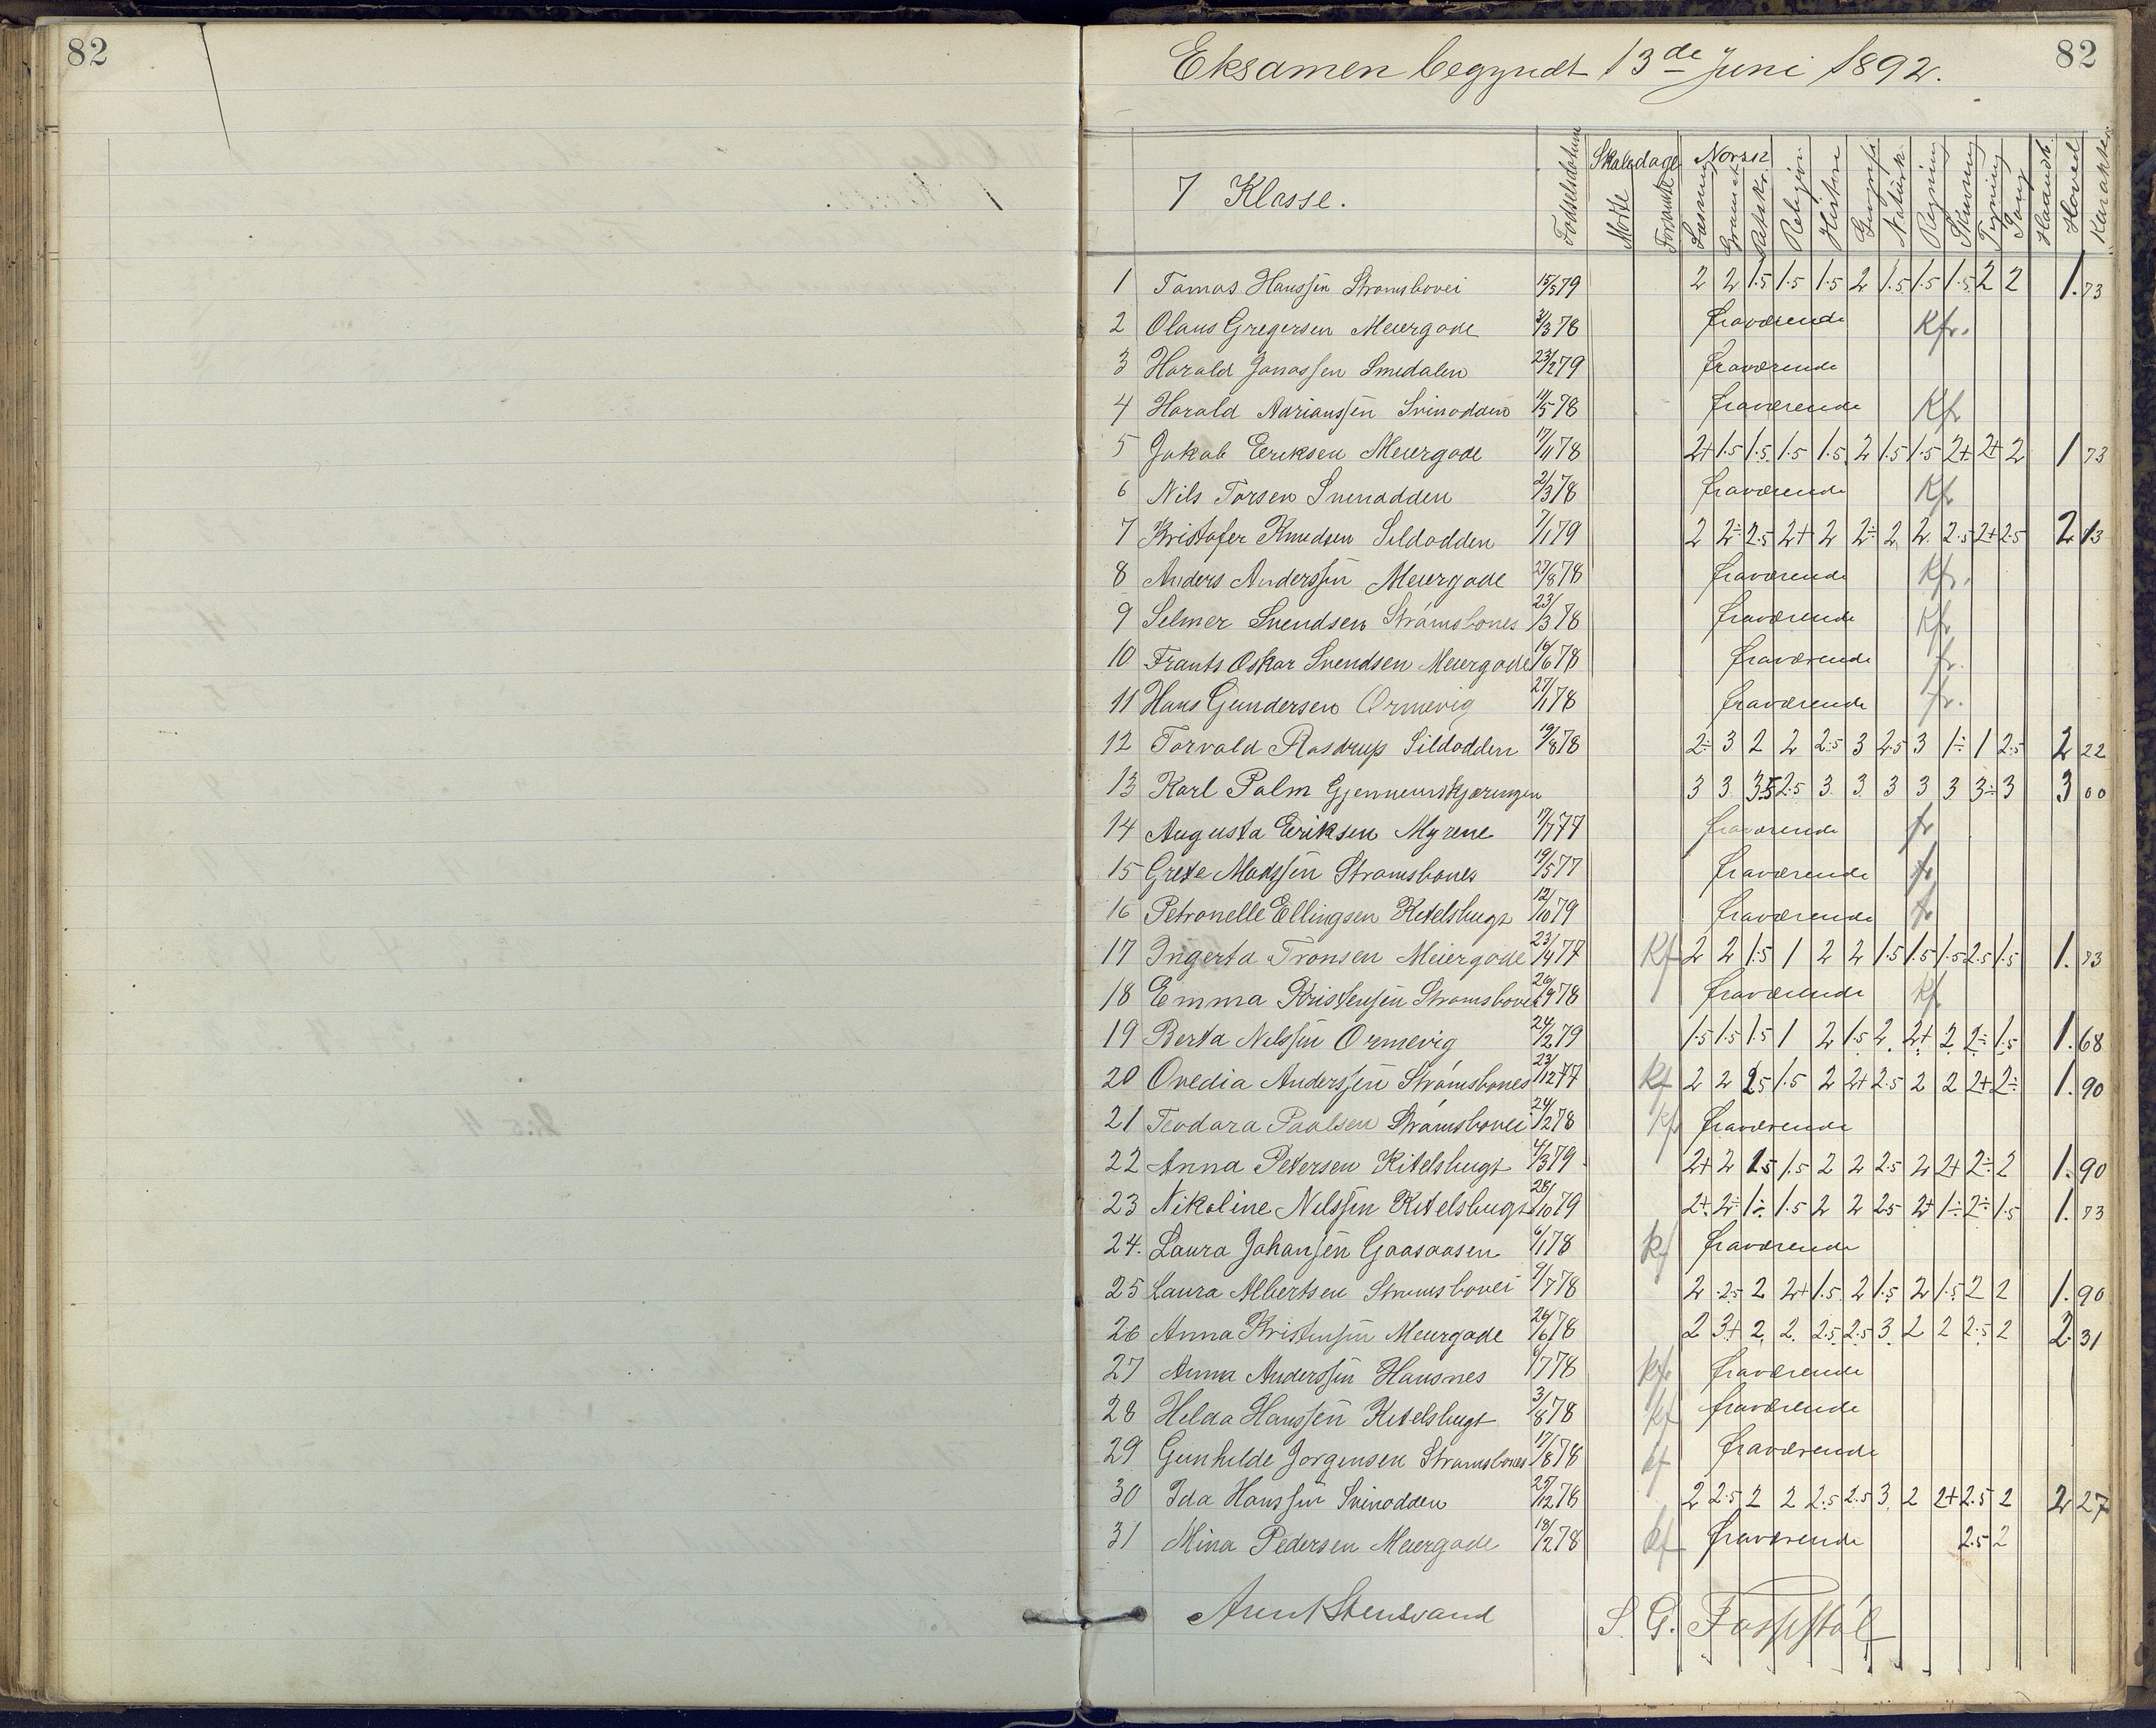 82
82
Eksamen begyndt 13de Juni 1892.
7 Klasse.
Fødselsdatum Skoledage Møtte Forsømte Norsk Læsning Religion Historie Regning Skrivning Tegning Sang Hoved Karakter
1 Tomas Hanssen Strømsbovei 15/5 79 2 2 1.5 1.5 1.5 2 1.5 1.5 1.5 2 2 1.73
2 Olaus Gregersen Meiergade 78 fraværende Kfr.
3 Harald Jonassen Smedalen 23/2 79 fraværende
4 Harald Adrianssen Svinodden 78 fraværende Kfr
5 Jakob Eeriksen Meiergade 17/4 78 2+ 1.5 1.5 1.5 1.5 2 1.5 1.5 2+ 2+ 2 1 73
6 Nils Torsen Svinodden 2/3 78 fraværende Kfr
7 Kristofer Knudsen Sildodden 7/1 79 2 2÷ 2.5 2+ 2 2÷ 2 2 2.5 2+ 2.5 2 13
8 Anders Anderssen Meiergade 27/8 78 fraværende Kfr.
9 Selmer Svendsen Strømsbones 23/3 78 fraværende Kfr
10 Frants Oskar Svendsen Meiergade 16/6 78 fraværende fr.
11 Hans Gundersen Ormevig 27/1 78 fraværende fr.
12 Torvald Rosdrup Sildodden 19/8 78 2÷ 3 2 2 2.5 3 2.5 3 1÷ 1 2.5 2 22
13 Karl Palm Gjennemskjæringen 3 3 3.5 2.5 3 3 3 3 3 3÷ 3 3 00
14 Augusta Eriksen Myrene 17/7 77 fraværende fr
15 Grete Madssen Strømsbones 19/5 77 fraværende fr
16 Petronelle Ellingsen Kitelsbugt 12/10 79 fraværende fr
17 Ingerta Tronsen Meiergade 23/4 77 Kf 2 2 1.5 1 2 2 1.5 1.5 1.5 2.5 1.5 1.73
18 Emma Kristensen Strømsbovei 26/9 78 fraværende Kf
19 Berta Nilssen Ormevig 24/2 79 1.5 1.5 1.5 1 2 1.5 2 2+ 2 2÷ 1.5 1.68
20 Ovedia Anderssen Strømsbones 23/12 77 Kf 2 2 2.5 1.5 2 2+ 2.5 2 2 2+ 2÷ 1.90
21 Teodora Paulsen Strømsbovei 24/2 78 Kf fraværende
22 Anna Petersen Kitelsbugt 4/3 79 2+ 2 1.5 1.5 2 2 2.5 2 2+ 2÷ 2 1.90
23 Nikoline Nilssen Kitelsbugt 28/10 79 2+ 2÷ 1÷ 1.5 2 2 2.5 2+ 1÷ 2÷ 1.5 1.73
24. Laura Johansen Gaasaasen 6/1 78 Kf fraværende
25 Laura Albertsen Strømsbovei 9/7 78 2 2.5 2 2+ 1.5 2 1.5 2 1.5 2 2 1.90
26 Anna Kristensen Meiergade 26/6 78 2 3+ 2 2 2.5 2.5 3 2 2 2.5 2 2.31
27 Anna Anderssen Hausnes 78 Kfr fraværende
28 Helda Hanssen Kitelsbugt 3/8 78 Kf fraværende
29 Gunhilde Jorgensen Strømsbones 17/8 78 kf fraværende
30 Ida Hanssen Svinodden 25/12 78 2 2.5 2 2 2.5 2.5 3 2 2+ 2.5 2 2 27
31 Mina Pedersen Meiergade 18/2 78 kf fraværende 2.5 2
Stensvand S. G. Fosselstøl